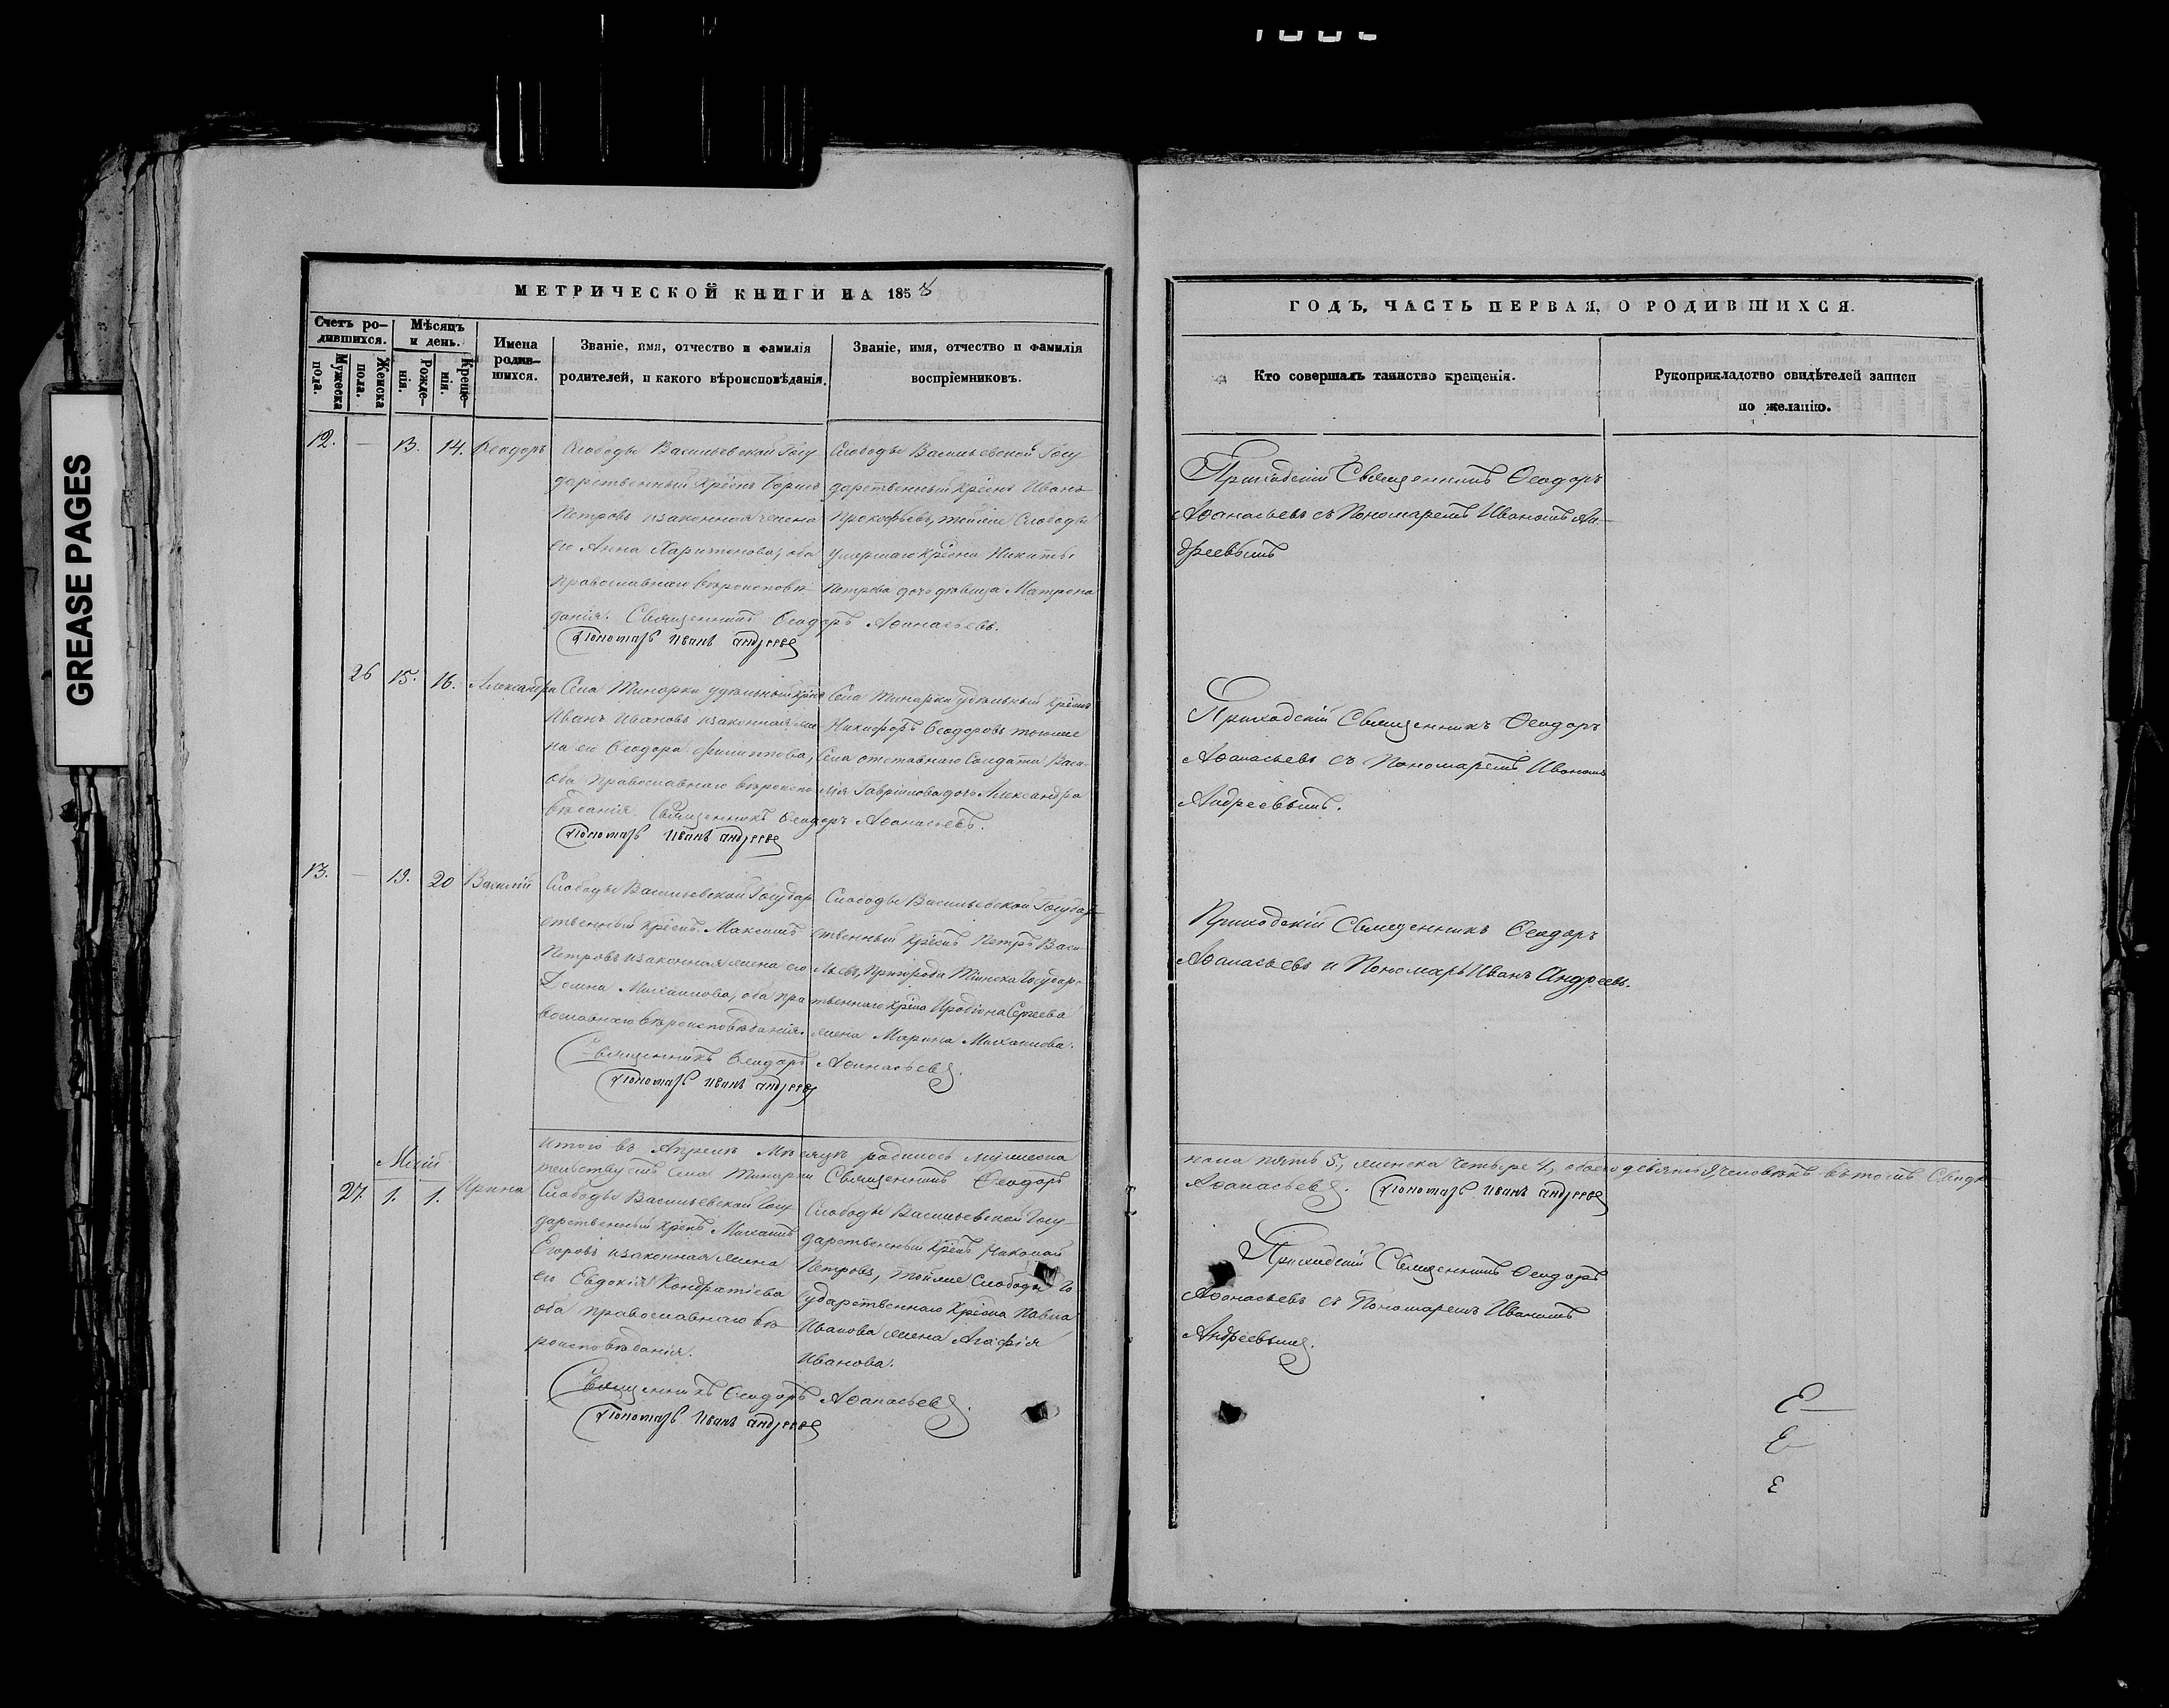 GREASE PAGES
МЕТРИЧЕСКОЙ КНИГИ НА 1858
Счетъ ро-
дившихся.
Мужеска
пола.
Женска
пола.
Мѣсяцъ
и день.
Рожде-
нія.
Креще-
нія.
Имена
родив-
шихся.
Званіе, имя, отчество и фамилія
родителей, и какого вѣроисповѣданія.
Званіе, имя, отчество и фамилія
воспріемниковъ.
12. — 13. 14. Ѳеодоръ
Слободы Васильевской Госу
дарственный Крестн Борисъ
Петровъ изаконная жена
его Анна Харитонова, оба
православнаго вѣроисповѣ-
данія. Священникъ Ѳеодоръ Аѳанасьевъ.
Пономарь Иванъ Андреевъ
Слободы Васильевской Госу
дарственный Крестн Иванъ
Прокофьевъ, тойже Слободы
умершаго Крестн Никиты
Петрова дочь дѣвица Матрона
26 15. 16. Александра
Села Тинарки удѣльный Крест
Иванъ Ивановъ изаконная же
на его Ѳеодора Филиппова,
оба православнаго вѣроиспо
вѣданія. Священникъ Ѳеодоръ Аѳанасьевъ.
Пономарь Иванъ Андреевъ
Села Тинарки удѣльный Крестн
Никифоръ Ѳеодоровъ тогоже
Села отставнаго Солдата Васи-
лія Гаврилова дочь Александра
13. — 19. 20 Василій
Слободы Васильевской Государ
ственный Крестн Максимъ
Петровъ изаконная жена его
Домна Михайлова, оба пра
вославнаго вѣроисповѣданія.
Священникъ Ѳеодоръ Аѳанасьевъ.
Пономарь Иванъ Андреевъ
Слободы Васильевской Государ
ственный Крестн Петръ Васи-
льевъ, Пригорода Тіинска Государ-
твеннаго Крестн Иродіона Сергеева
жена Марина Михайлова.
Итого въ Апрелѣ Мѣсяцѣ родилось мужеска
жельствуетъ Села Тинарки Священникъ Ѳеодоръ
Маій
27. 1. 1. Ирина
Слободы Васильевской Госу
дарственный Крест Михаилъ
Егоровъ изаконная жена
его Евдокія Кондратіева
оба православнаго вѣ-
роисповѣданія.
Священникъ Ѳеодоръ Аѳанасьевъ.
Пономарь Иванъ Андреевъ
Слободы Васильевской Госу-
дарственный Крест Николай
Петровъ, тойже Слободы Го
сударственнаго Крестн Павла
Иванова жена Агафія
Иванова.
ГОДЪ, ЧАСТЬ ПЕРВАЯ, О РОДИВШИХСЯ.
Кто совершалъ таинство крещенія.
Рукоприкладство свидѣтелей записи
по желанію.
Приходскій Священникъ Ѳеодоръ
Аѳанасьевъ съ Пономаремъ Иваномъ Ан-
дреевымъ
Приходскій Священникъ Ѳеодоръ
Аѳанасьевъ съ Пономаремъ Иваномъ
Андреевымъ.
Приходскій Священникъ Ѳеодоръ
Аѳанасьевъ и Пономарь Иванъ Андреевъ.
пола пять 5, женска четыре 4, обоего девять 9, человѣкъ въ томъ Свидѣ
Аѳанасьевъ. Пономарь Иванъ Андреевъ
Приходскій Священникъ Ѳеодоръ
Аѳанасьевъ съ Пономаремъ Иваномъ
Андреевымъ.